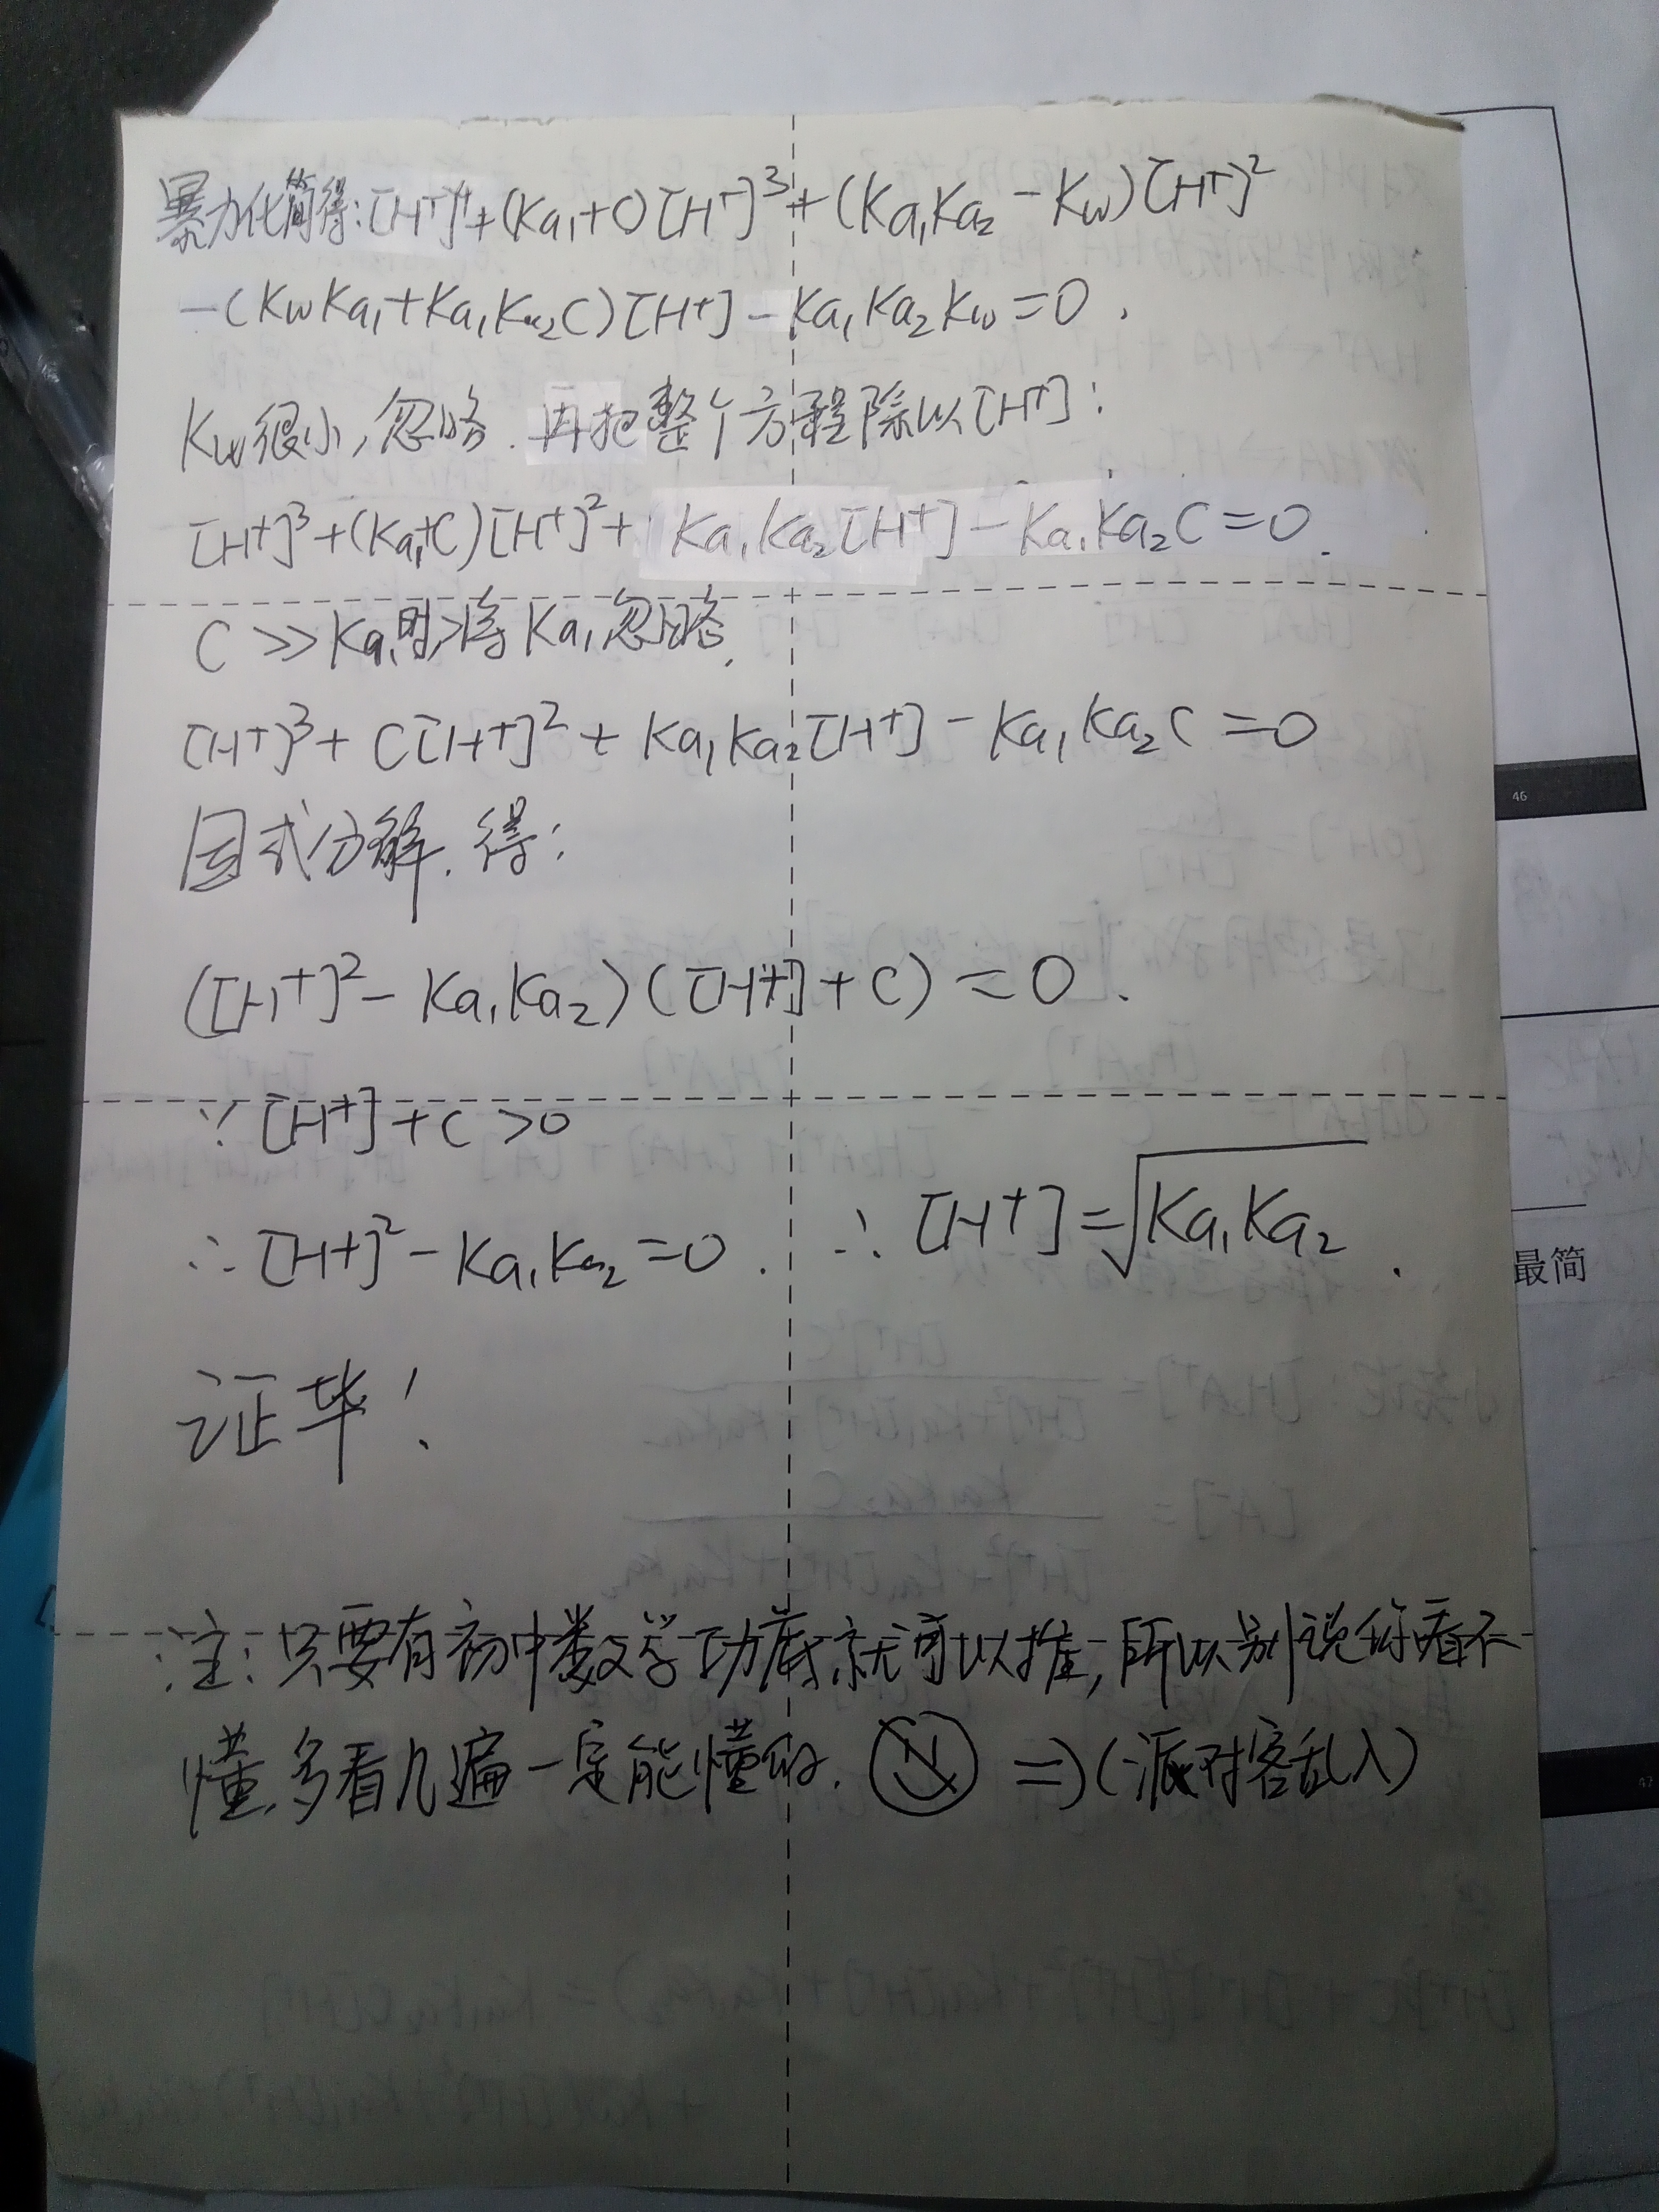 暴力化简得:[H⁺]⁴+(Ka₁+C)[H⁺]³+(Ka₁Ka₂-Kw)[H⁺]²
-(KwKa₁+Ka₁Ka₂C)[H⁺]-Ka₁Ka₂Kw=0.
Kw很小,忽略.再把整个方程除以[H⁺]:
[H⁺]³+(Ka₁+C)[H⁺]²+Ka₁Ka₂[H⁺]-Ka₁Ka₂C=0.
C>>Ka₁时,将Ka₁忽略.
[H⁺]³+C[H⁺]²+Ka₁Ka₂[H⁺]-Ka₁Ka₂C=0
46
因式分解.得:
([H⁺]²-Ka₁Ka₂)([H⁺]+C)=0.
∵[H⁺]+C>0
∴[H⁺]²-Ka₁Ka₂=0. ∴[H⁺]=√Ka₁Ka₂.
最简
证毕!
注:只要有初中数学功底就可以推,所以别说你看不
懂,多看几遍一定能懂的. =)(派对客乱入)
47